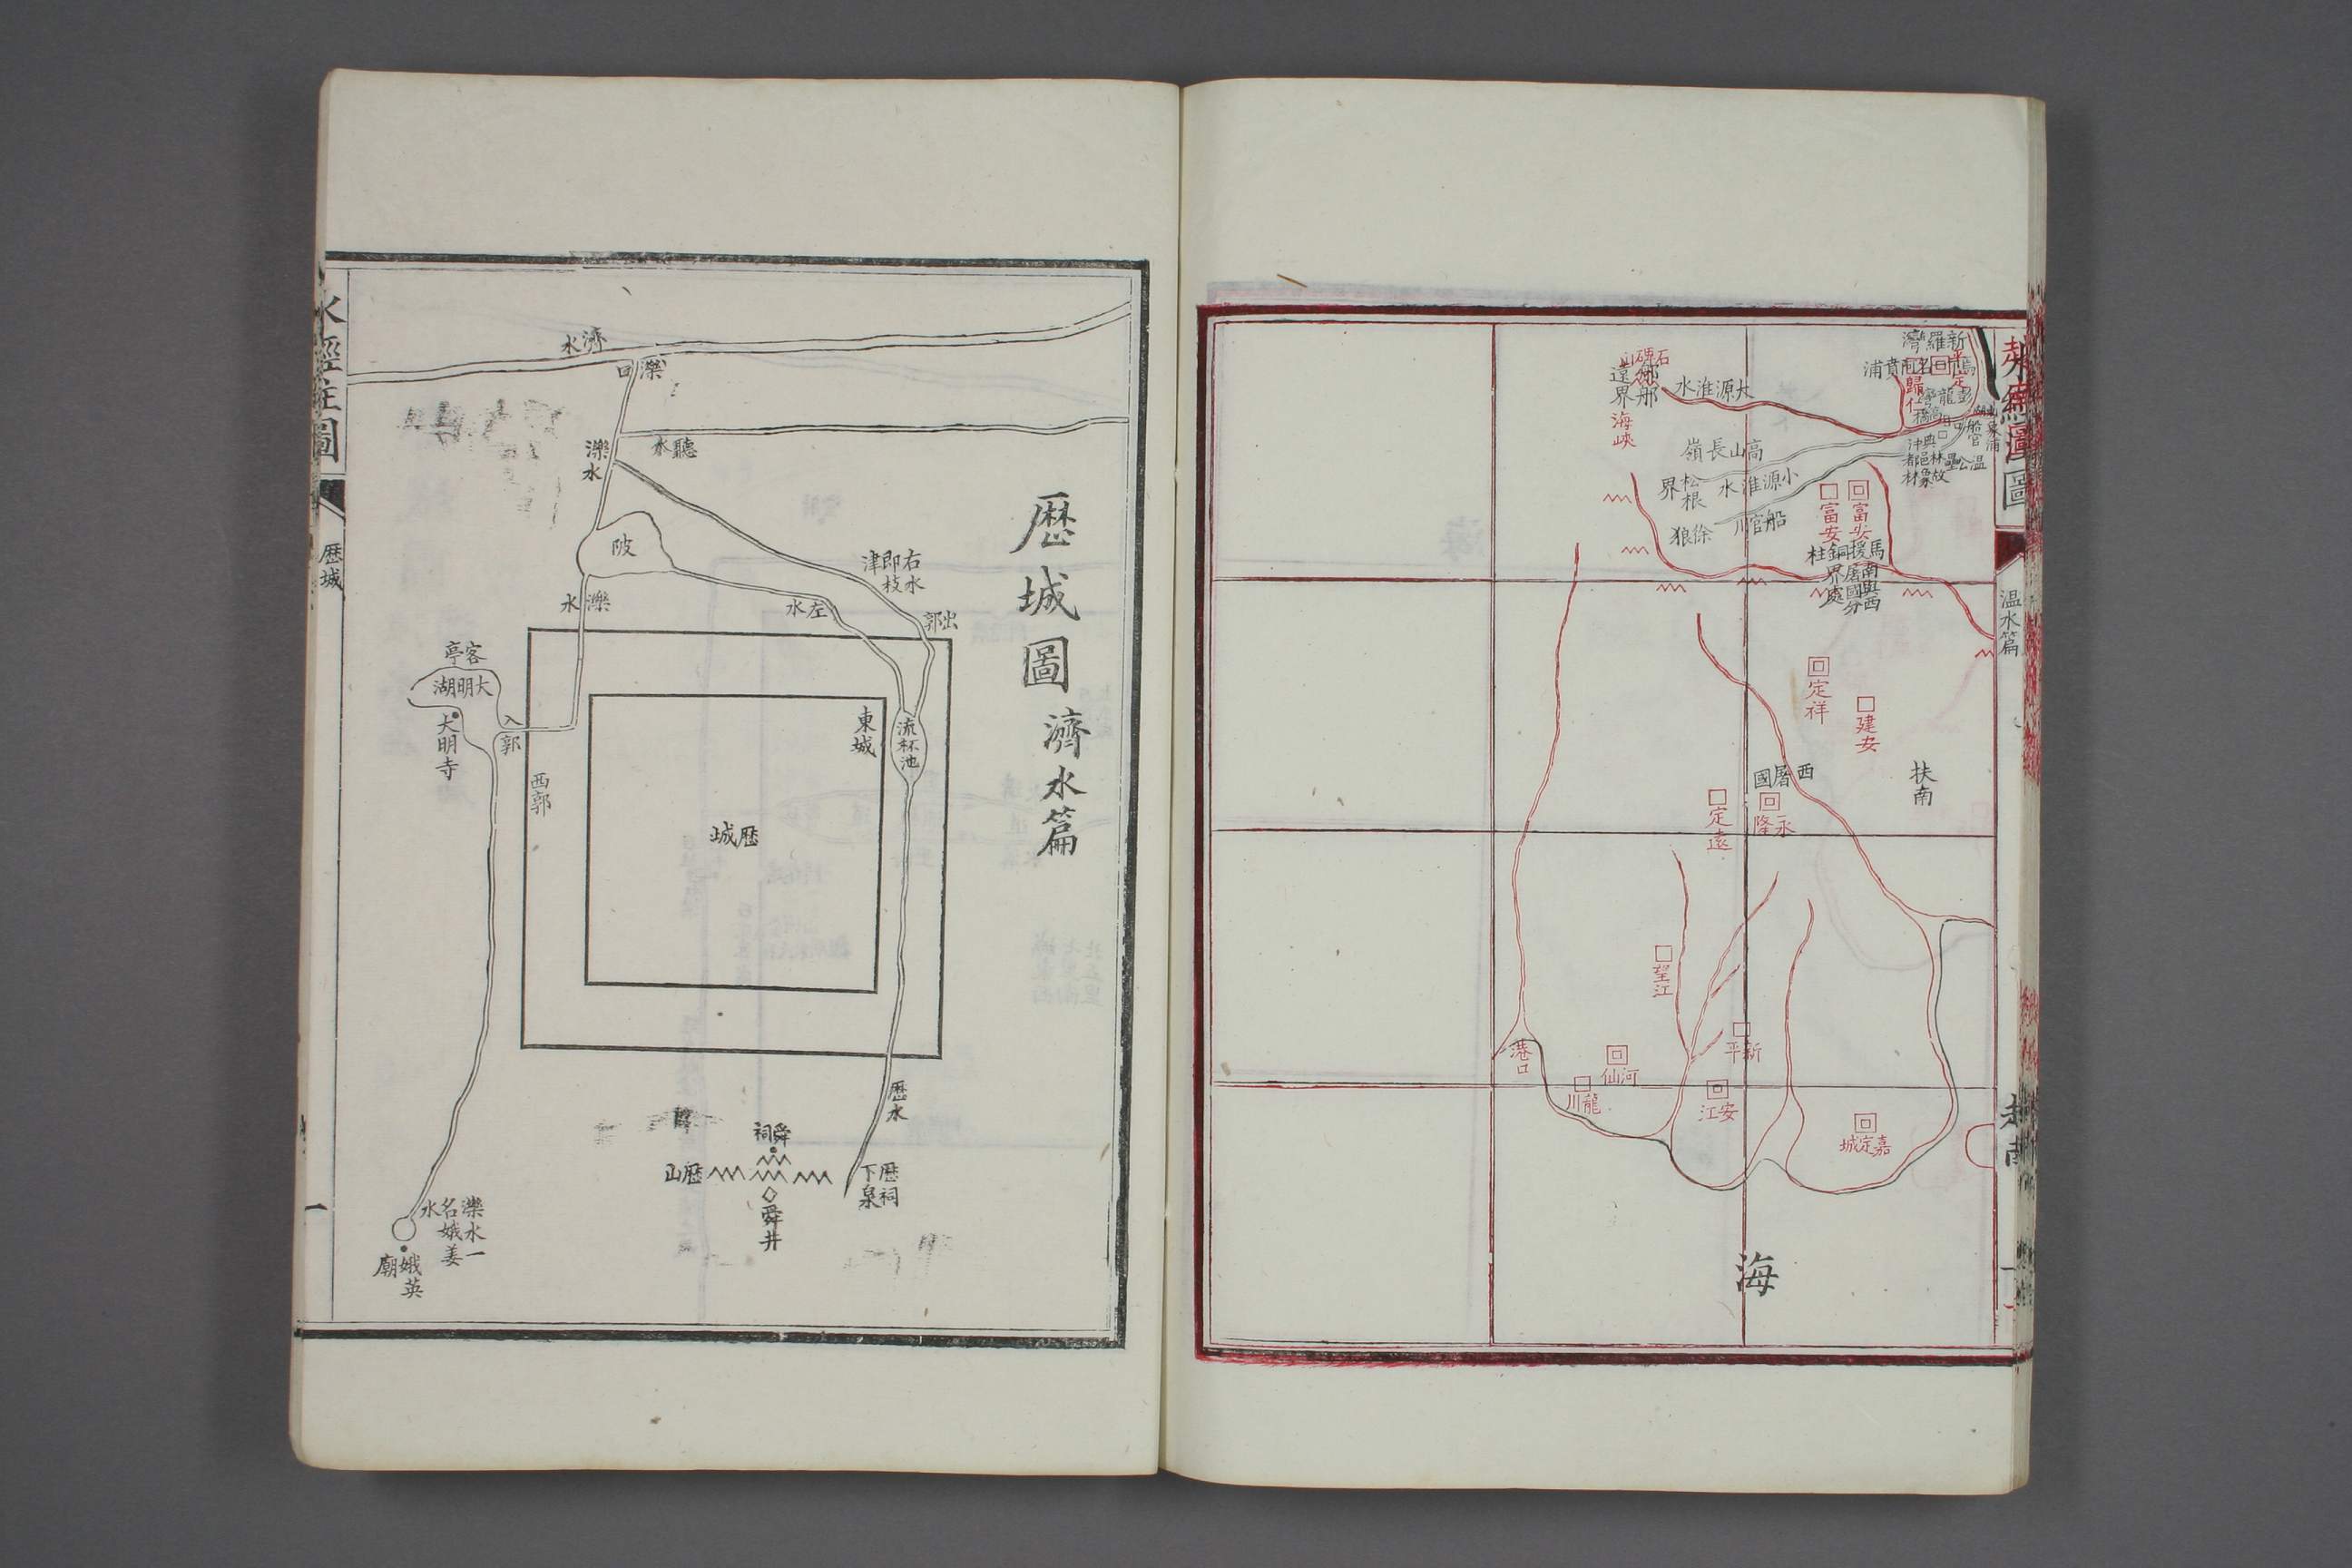 新羅灣
賁浦
歸仁
石碑山
遠界
海峽
大源淮水
高山長嶺
松根界
小源淮水
船官川
徐狼
典沖
林邑故都
象林
温公壘
船官
富安
富安
馬援銅柱
南與西屠國分界處
定祥
建安
西屠國
扶南
定遠
永隆
望江
新平
港口
河仙
龍川
安江
嘉定城
海
温水篇
越南
歷城圖
濟水篇
濟水
濼口
濼水
聽水
陂
右水即枝津
出郭
濼水
左水
客亭
大明湖
大明寺
入郭
西郭
東城
流杯池
歷城
歷水
舜祠
歷山
舜井
歷祠下泉
濼水一名娥姜水
娥英廟
水經注圖
歷城
一